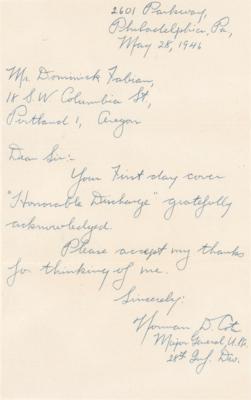 2601 Parkway,
Philadelphia, Pa,
May 28, 1946
Mr Dominick Fabian,
18 S.W Columbia St,
Portland 1, Oregon
Dear Sir:-
Your First day cover
"Honorable Discharge" gratefully
acknowledged.
Please accept my thanks
for thinking of me.
Sincerely:
Norman D. Cota
Major General, U.S.A.
28th Inf. Div.